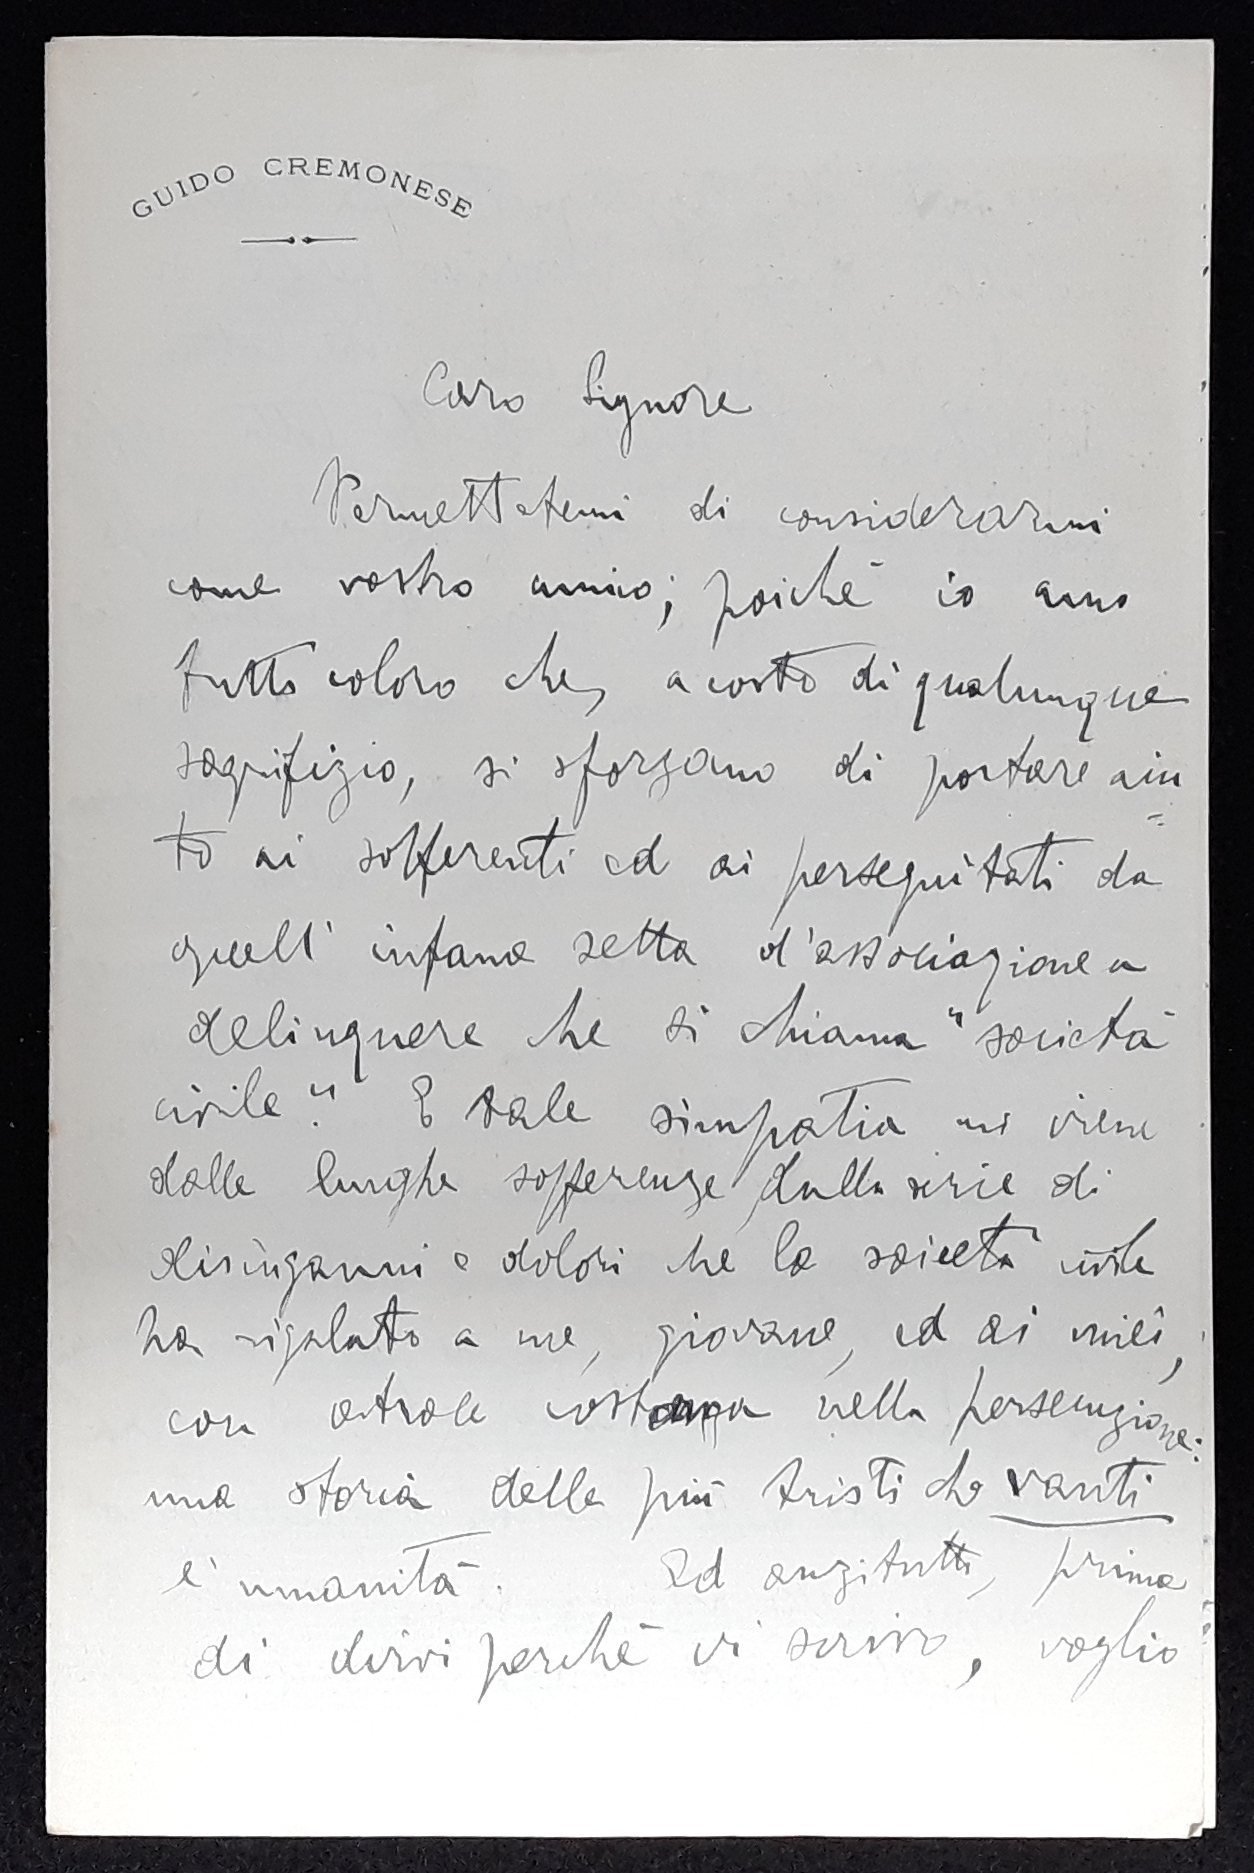 GUIDO CREMONESE
Caro Signore
Permettetemi di considerarmi
come vostro amico; poichè io amo
tutti coloro che, a costo di qualunque
sagrifizio, si sforzano di portare aiu
=
to ai sofferenti ed ai perseguitati da
quell' infame setta d'associazione a
delinquere che si chiama "società
civile". E tale simpatia mi viene
dalle lunghe sofferenze, dalla serie di
disinganni e dolori che la società civile
ha rigalato a me, giovane, ed ai miei,
con atroce costanza nella persecuzione:
una storia delle più tristi che vanti
l'umanità. Ed anzitutto, prima
di dirvi perchè vi scrivo, voglio